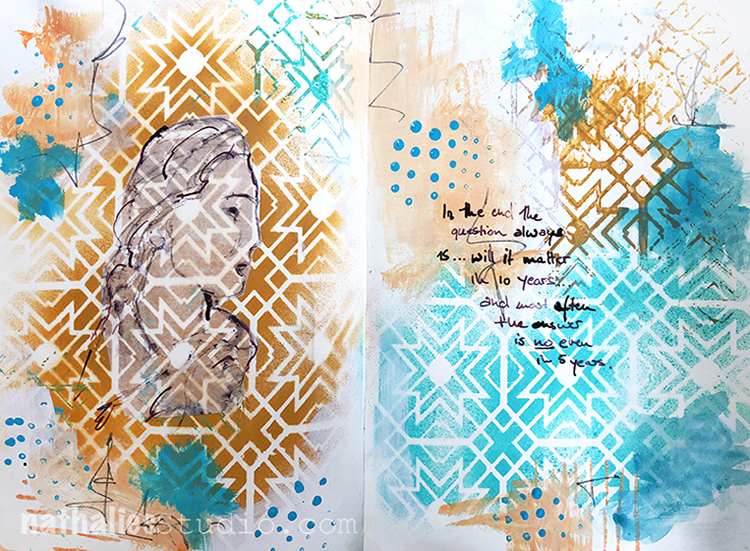 In the end the
question always
is... will it matter
in 10 years...
and most often
the answer
is no even
in 5 years.
nathaliesstudio.com